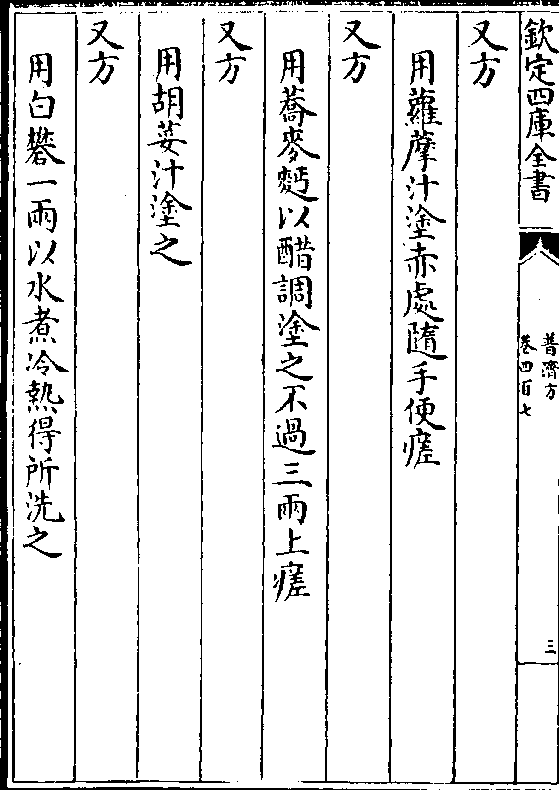 欽定四庫全書
普濟方
卷四百七
三
又方
用蘿藦汁塗赤處隨手便瘥
又方
用蕎麥麪以醋調塗之不過三兩上瘥
又方
用胡荽汁塗之
又方
用白礬一兩以水煮冷熱得所洗之